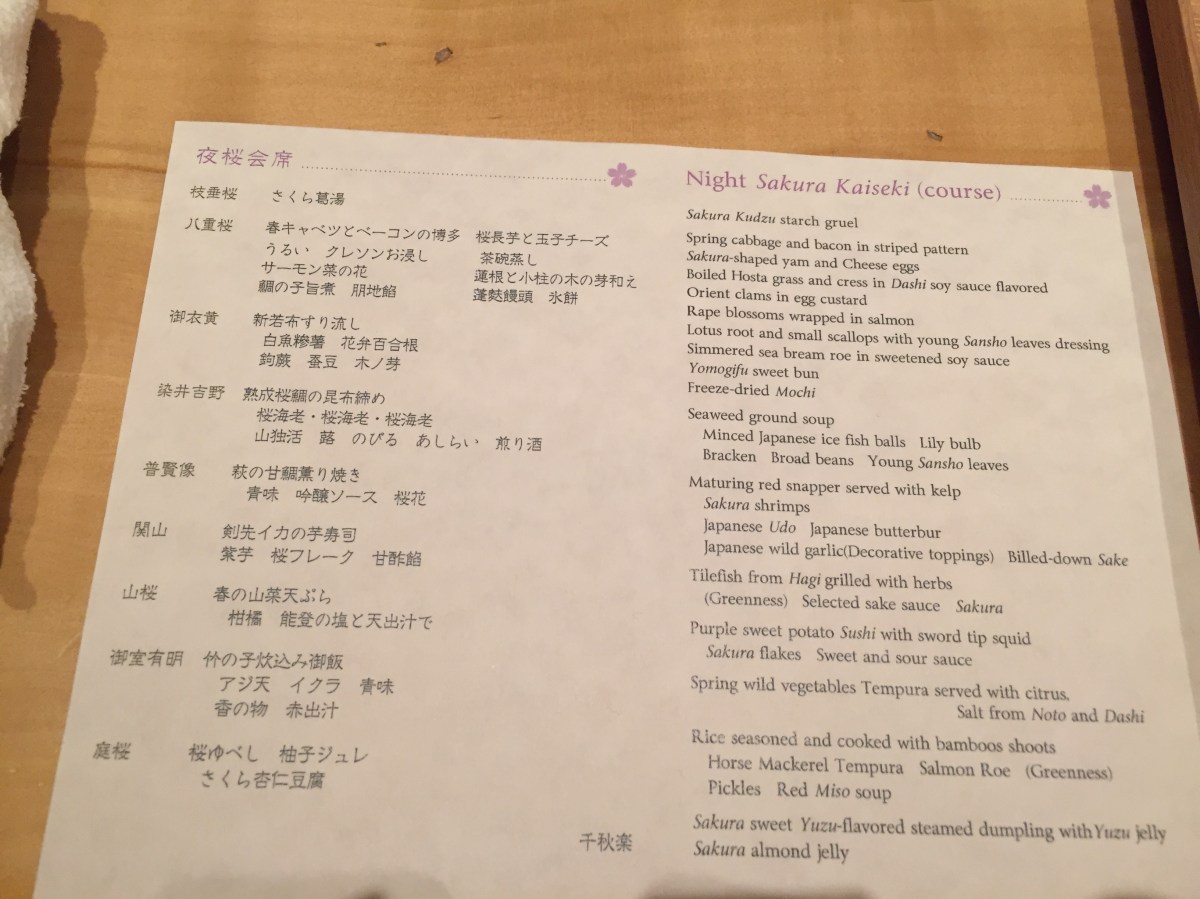 夜桜会席
枝垂桜 さくら葛湯
八重桜 春キャベツとベーコンの博多 桜長芋と玉子チーズ
うるい クレソンお浸し 茶碗蒸し
サーモン菜の花 蓮根と小柱の木の芽和え
鯛の子旨煮 朋地餡 蓬麩饅頭 氷餅
御衣黄 新若布すり流し
白魚糝薯 花弁百合根
鉤蕨 蚕豆 木ノ芽
染井吉野 熟成桜鯛の昆布締め
桜海老・桜海老・桜海老
山独活 蕗 のびる あしらい 煎り酒
普賢像 萩の甘鯛薫り焼き
青味 吟醸ソース 桜花
関山 剣先イカの芋寿司
紫芋 桜フレーク 甘酢餡
山桜 春の山菜天ぷら
柑橘 能登の塩と天出汁で
御室有明 竹の子炊込み御飯
アジ天 イクラ 青味
香の物 赤出汁
庭桜 桜ゆべし 柚子ジュレ
さくら杏仁豆腐
千秋楽
Night Sakura Kaiseki (course)
Sakura Kudzu starch gruel
Spring cabbage and bacon in striped pattern
Sakura-shaped yam and Cheese eggs
Boiled Hosta grass and cress in Dashi soy sauce flavored
Orient clams in egg custard
Rape blossoms wrapped in salmon
Lotus root and small scallops with young Sansho leaves dressing
Simmered sea bream roe in sweetened soy sauce
Yomogifu sweet bun
Freeze-dried Mochi
Seaweed ground soup
Minced Japanese ice fish balls Lily bulb
Bracken Broad beans Young Sansho leaves
Maturing red snapper served with kelp
Sakura shrimps
Japanese Udo Japanese butterbur
Japanese wild garlic(Decorative toppings) Billed-down Sake
Tilefish from Hagi grilled with herbs
(Greenness) Selected sake sauce Sakura
Purple sweet potato Sushi with sword tip squid
Sakura flakes Sweet and sour sauce
Spring wild vegetables Tempura served with citrus.
Salt from Noto and Dashi
Rice seasoned and cooked with bamboos shoots
Horse Mackerel Tempura Salmon Roe (Greenness)
Pickles Red Miso soup
Sakura sweet Yuzu-flavored steamed dumpling with Yuzu jelly
Sakura almond jelly